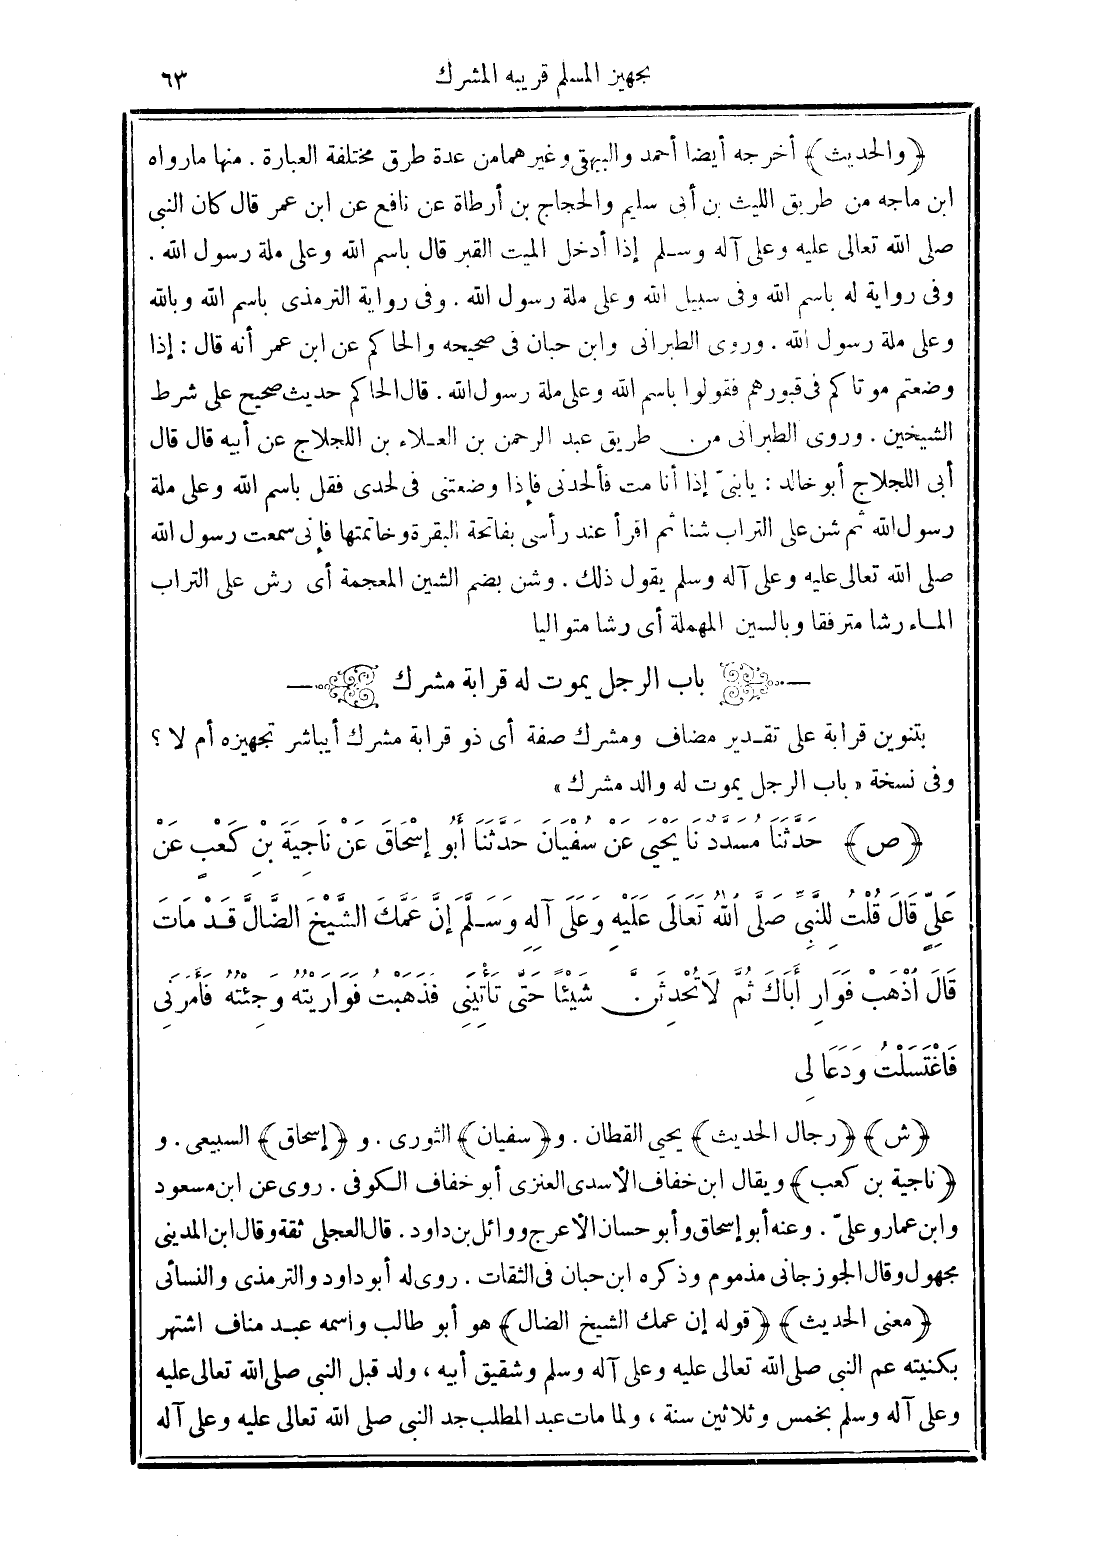 تجهيز المسلم قريبه المشرك ٦٣
﴿والحديث﴾ أخرجه أيضا أحمد والبيهقى وغيرهما من عدة طرق مختلفة العبارة . منها مارواه
ابن ماجه من طريق الليث بن أبى سليم والحجاج بن أرطاة عن نافع عن ابن عمر قال كان النبى
صلى الله تعالى عليه وعلى آله وسلم إذا أدخل الميت القبر قال باسم الله وعلى ملة رسول الله .
وفى رواية له باسم الله وفى سبيل الله وعلى ملة رسول الله . وفى رواية الترمذى باسم الله وبالله
وعلى ملة رسول الله . وروى الطبرانى وابن حبان فى صحيحه والحاكم عن ابن عمر أنه قال : إذا
وضعتم موتاكم فى قبورهم فقولوا باسم الله وعلى ملة رسول الله . قال الحاكم حديث صحيح على شرط
الشيخين . وروى الطبرانى من طريق عبد الرحمن بن العلاء بن اللجلاج عن أبيه قال قال
أبى اللجلاج أبو خالد : يابنىّ إذا أنا مت فألحدنى فإذا وضعتنى فى لحدى فقل باسم الله وعلى ملة
رسول الله ثم شن على التراب شنا ثم اقرأ عند رأسى بفاتحة البقرة وخاتمتها فإنى سمعت رسول الله
صلى الله تعالى عليه وعلى آله وسلم يقول ذلك . وشن بضم الشين المعجمة أى رش على التراب
الماء رشا مترفقا وبالسين المهملة أى رشا متواليا
باب الرجل يموت له قرابة مشرك
بتنوين قرابة على تقدير مضاف ومشرك صفة أى ذو قرابة مشرك أيباشر تجهيزه أم لا ؟
وفى نسخة « باب الرجل يموت له والد مشرك »
﴿ص﴾ حَدَّثَنَا مُسَدَّدٌ نَا يَحْيَى عَنْ سُفْيَانَ حَدَّثَنَا أَبُو إِسْحَاقَ عَنْ نَاجِيَةَ بْنِ كَعْبٍ عَنْ
عَلِىٍّ قَالَ قُلْتُ لِلنَّبِىِّ صَلَّى اللهُ تَعَالَى عَلَيْهِ وَعَلَى آلِهِ وَسَلَّمَ إِنَّ عَمَّكَ الشَّيْخَ الضَّالَّ قَدْ مَاتَ
قَالَ اُذْهَبْ فَوَارِ أَبَاكَ ثُمَّ لَا تُحْدِثَنَّ شَيْئًا حَتَّى تَأْتِيَنِى فَذَهَبْتُ فَوَارَيْتُهُ وَجِئْتُهُ فَأَمَرَنِى
فَاغْتَسَلْتُ وَدَعَا لِى
﴿ش﴾ ﴿رجال الحديث﴾ يحيى القطان . و﴿سفيان﴾ الثورى . و ﴿إسحاق﴾ السبيعى . و
﴿ناجية بن كعب﴾ ويقال ابن خفاف الأسدى العنزى أبو خفاف الكوفى . روى عن ابن مسعود
وابن عمار وعلىّ . وعنه أبو إسحاق وأبو حسان الأعرج ووائل بن داود . قال العجلى ثقة وقال ابن المدينى
مجهول وقال الجوزجانى مذموم وذكره ابن حبان فى الثقات . روى له أبو داود والترمذى والنسائى
﴿معنى الحديث﴾ ﴿قوله إن عمك الشيخ الضال﴾ هو أبو طالب واسمه عبد مناف اشتهر
بكنيته عم النبى صلى الله تعالى عليه وعلى آله وسلم وشقيق أبيه ، ولد قبل النبى صلى الله تعالى عليه
وعلى آله وسلم بخمس وثلاثين سنة ، ولما مات عبد المطلب جد النبى صلى الله تعالى عليه وعلى آله